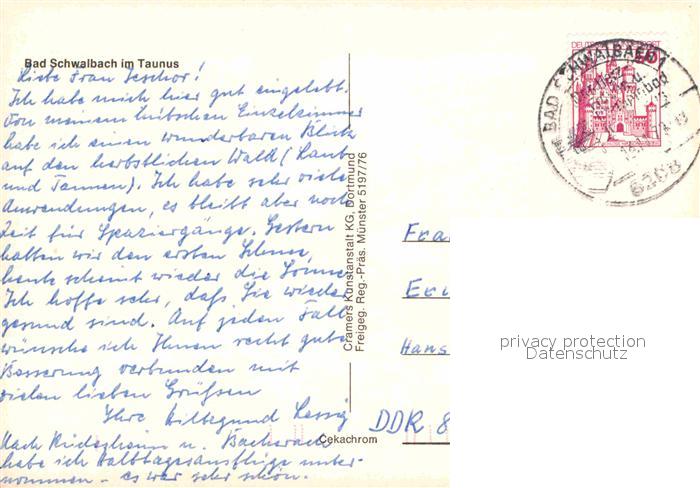 Bad Schwalbach im Taunus
Liebe Frau Jeschor!
Ich habe mich hier gut eingelebt.
Von meinem hübschen Einzelzimmer
habe ich einen wunderbaren Blick
auf den herbstlichen Wald (Laub
und Tannen). Ich habe sehr viele
Anwendungen, es bleibt aber noch
Zeit für Spaziergänge. Gestern
hatten wir den ersten Schnee,
heute scheint wieder die Sonne.
Ich hoffe sehr, daß Sie wieder
gesund sind. Auf jeden Fall
wünsche ich Ihnen recht gute
Besserung verbunden mit
vielen lieben Grüßen
Ihre Hiltegund Lessig
Nach Rüdesheim u. Bacharach
habe ich Halbtagesausflüge unter-
nommen - es war sehr schön.
Cramers Kunstanstalt KG, Dortmund
Freigeg. Reg.-Präs. Münster 5197/76
Cekachrom
BAD SCHWALBACH 1
6208
Frau
Eri
Hans
DDR 8
privacy protection
Datenschutz